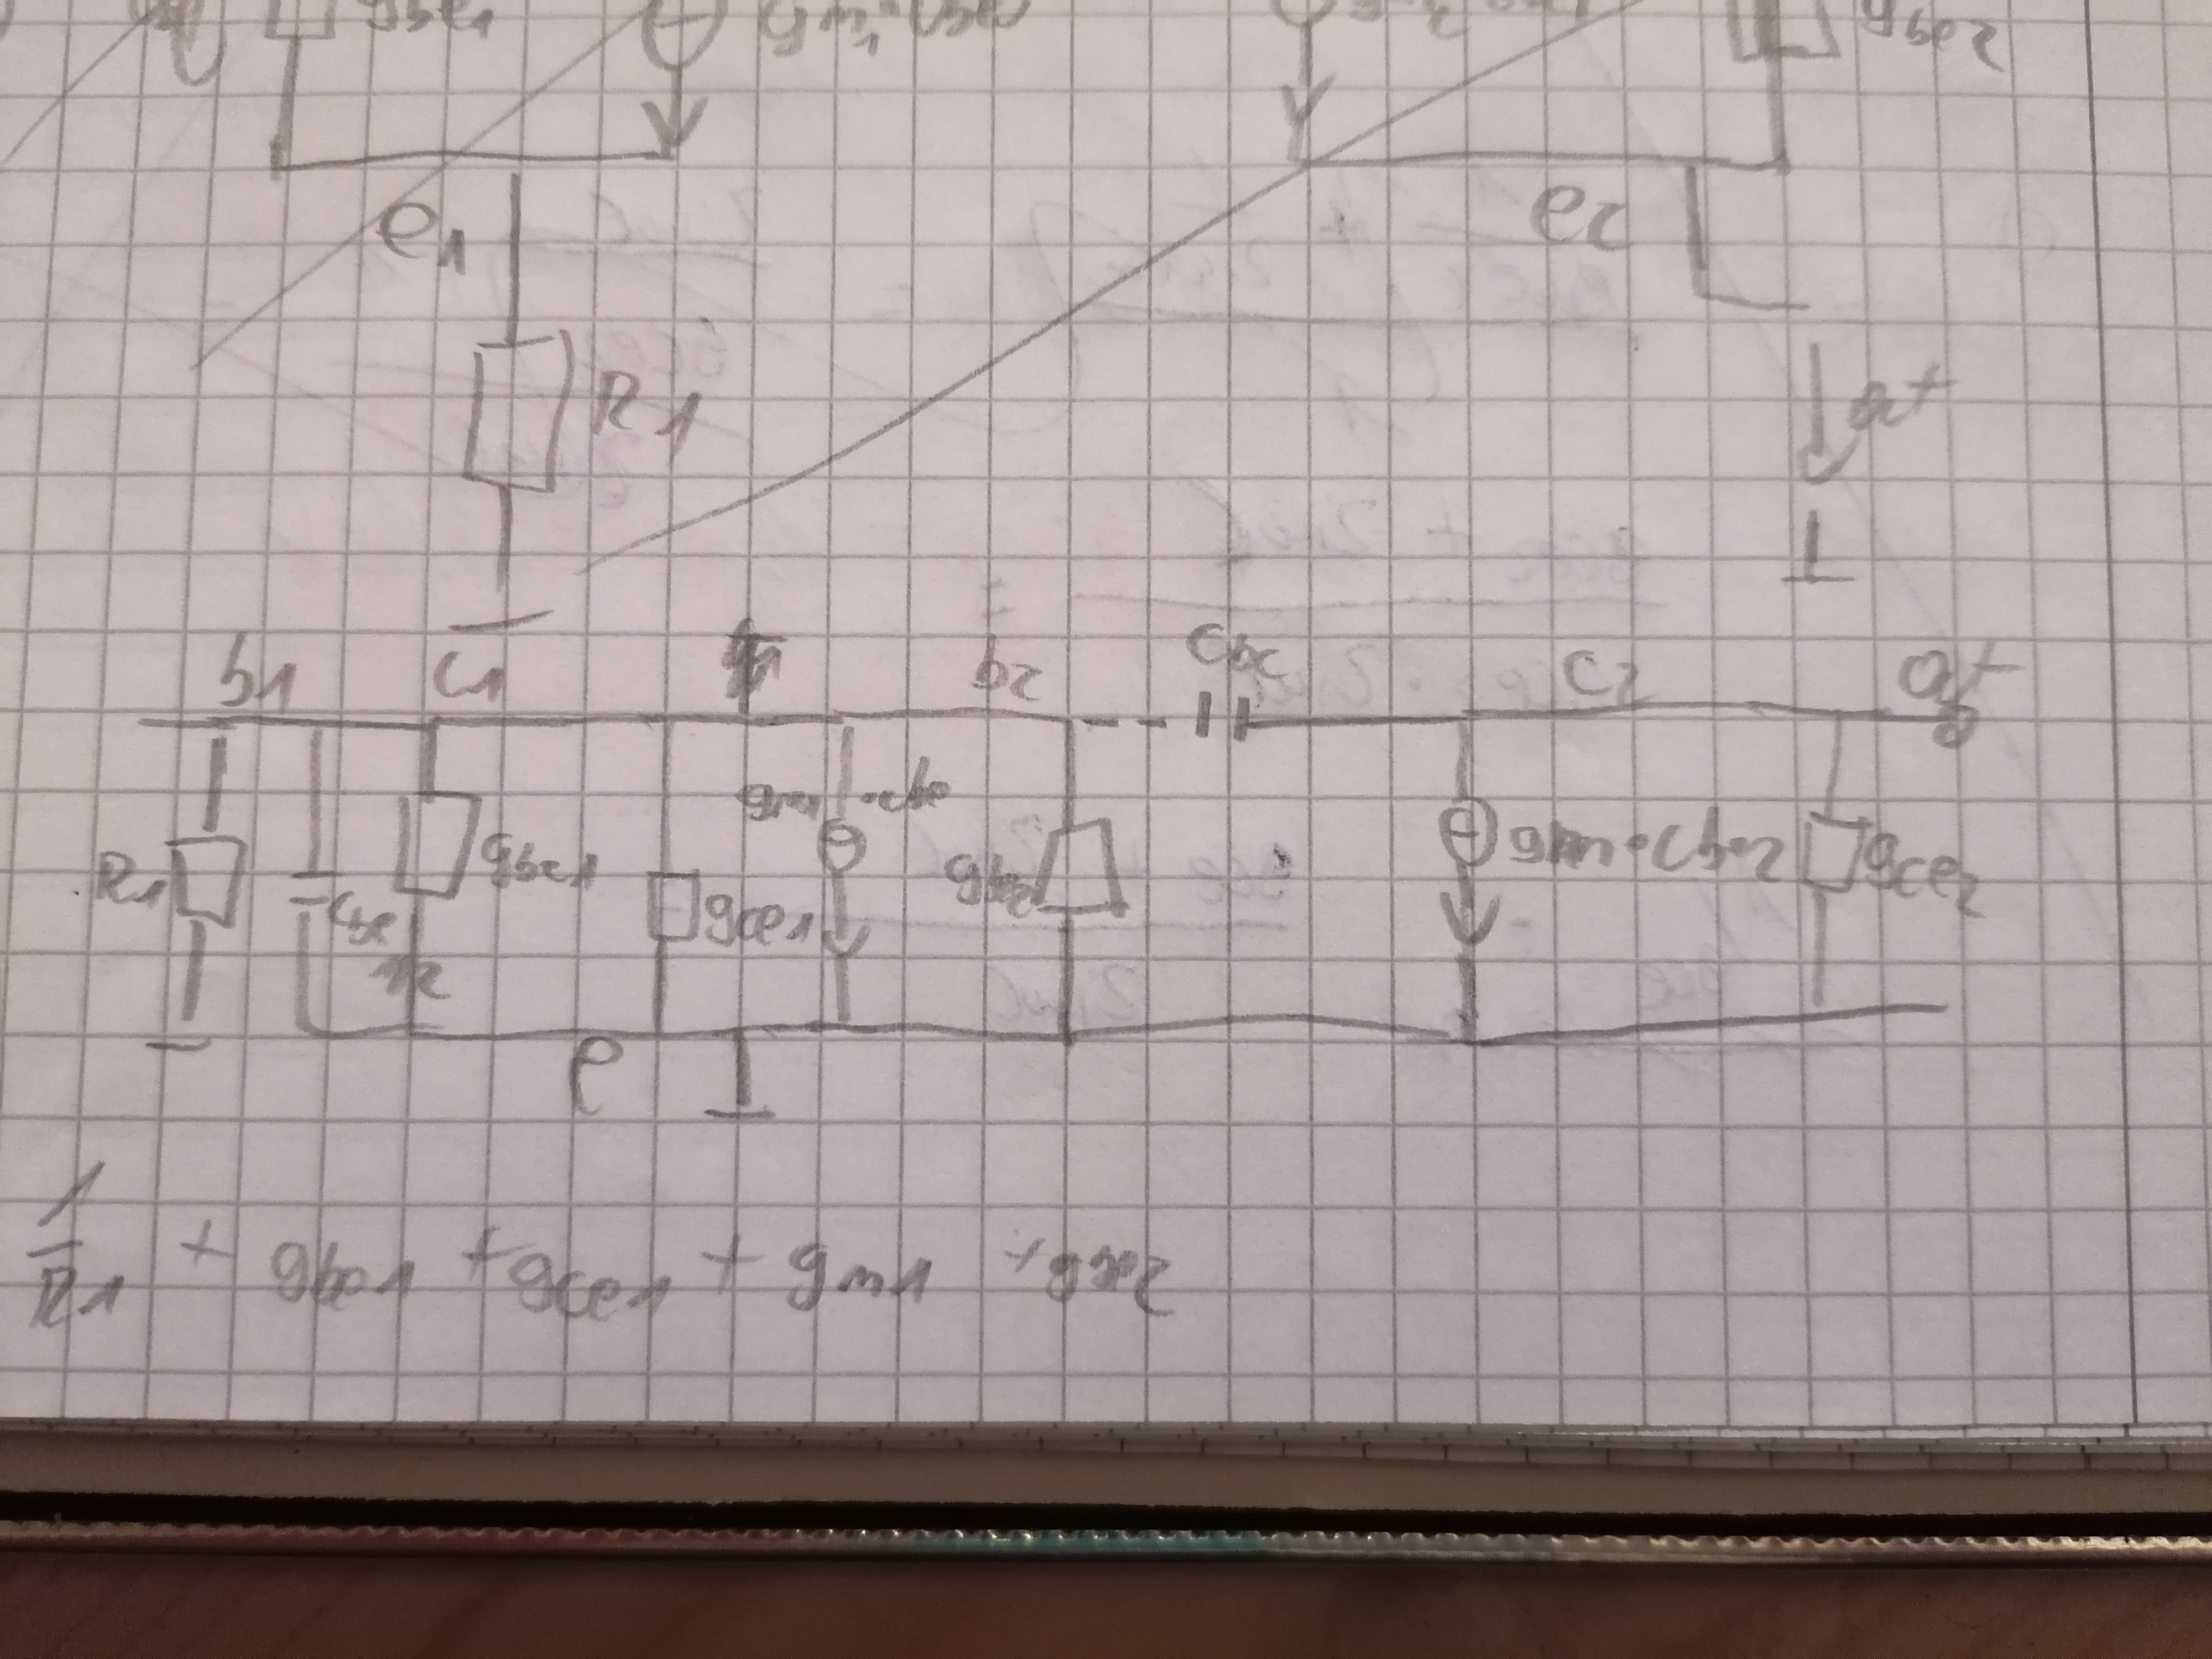 gbe1 gbe2
e1 e2
R1 a+
b1 c1 b2 Cbc c2 a+
R1 Cbe gbe1 gce1 gm1 · Ube gbe2 gm · Ube2 gce2
e
1/R1 + gbe1 + gce1 + gm1 + gbe2